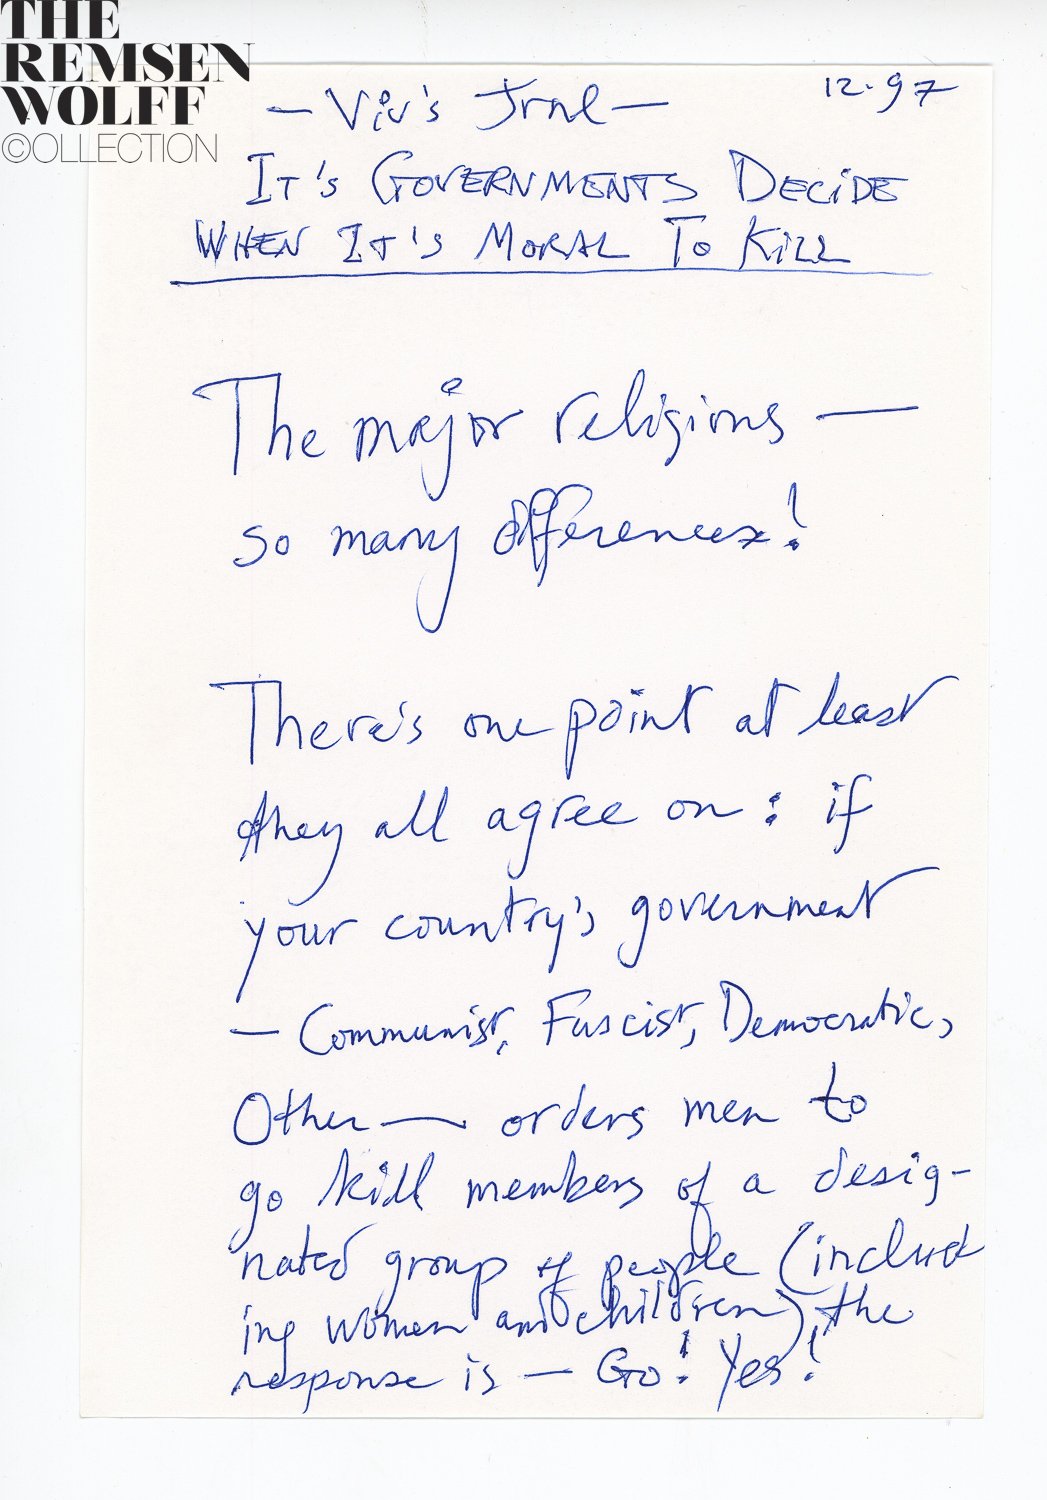 THE
REMSEN
WOLFF
©OLLECTION
— Viv's Jrnl — 12.97
IT'S GOVERNMENTS DECIDE
WHEN IT'S MORAL TO KILL
The major religions —
so many differences!
There's one point at least
they all agree on: if
your country's government
— Communist, Fascist, Democratic,
Other — orders men to
go kill members of a desig-
nated group of people (includ
ing women and children) the
response is — Go! Yes!